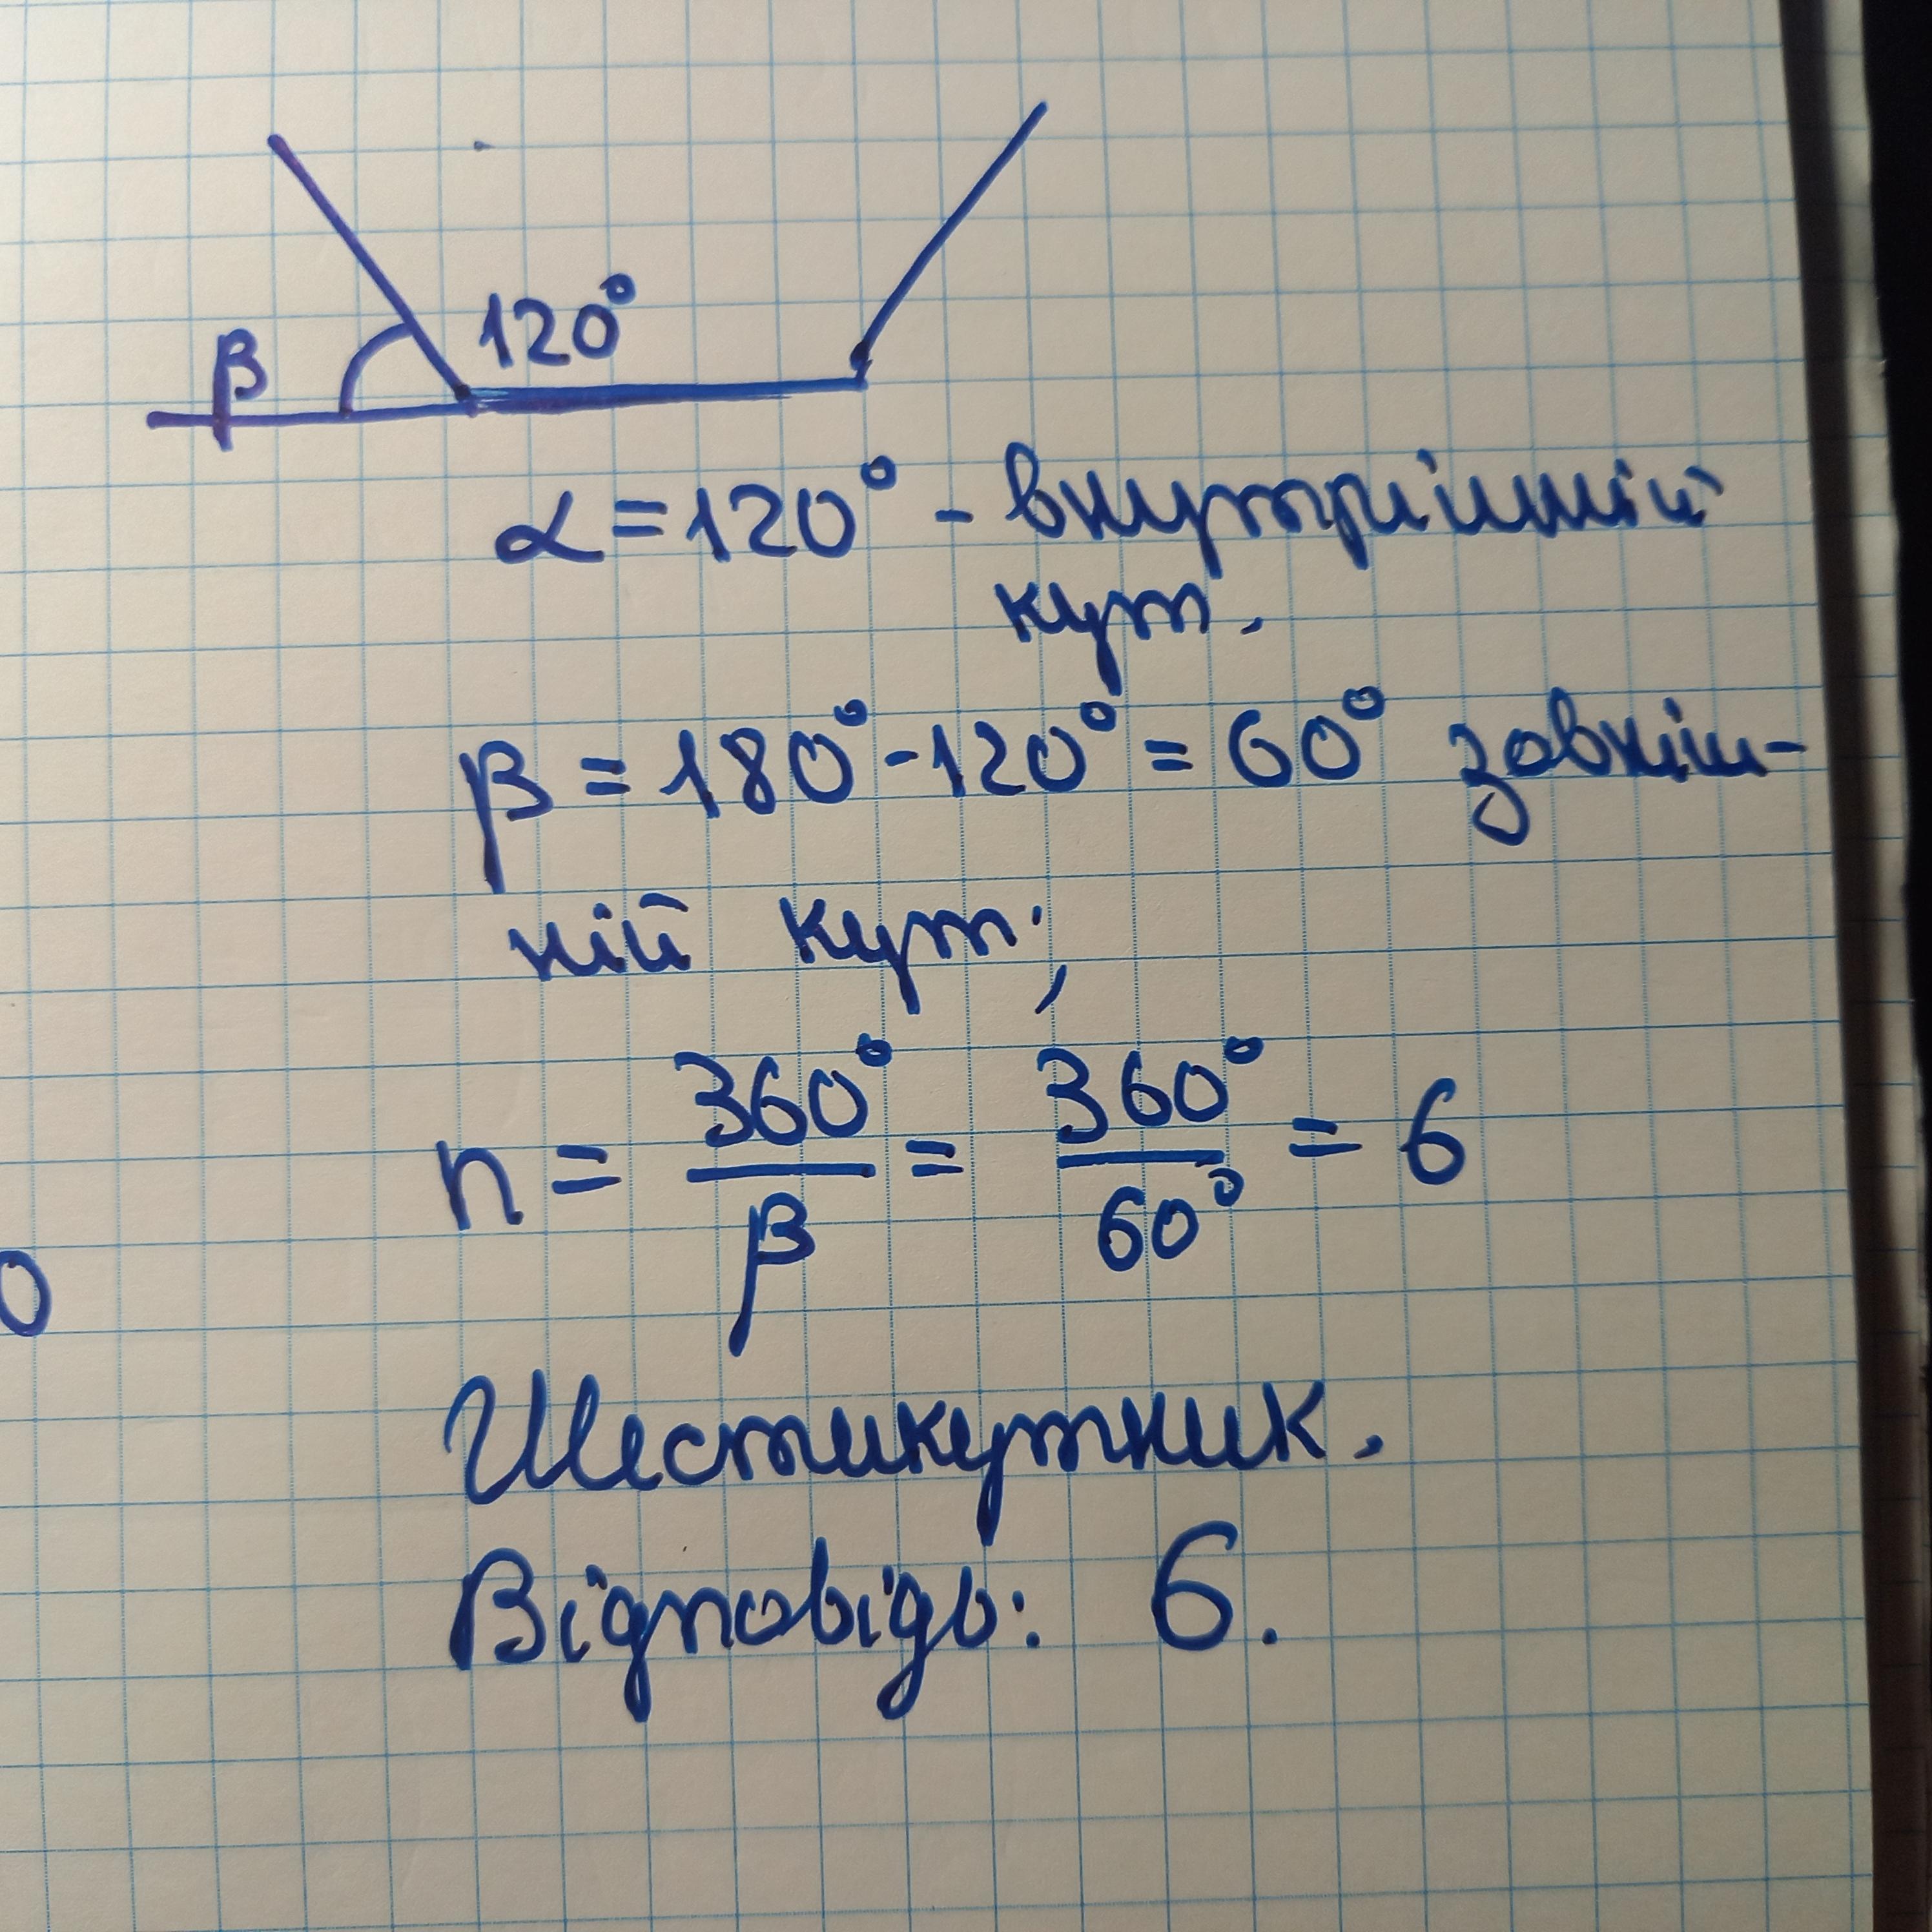 120°
β
α = 120° - внутрішній
кут.
β = 180° - 120° = 60° зовніш-
ній кут;
n = 360°/β = 360°/60° = 6
0
Шестикутник.
Відповідь: 6.